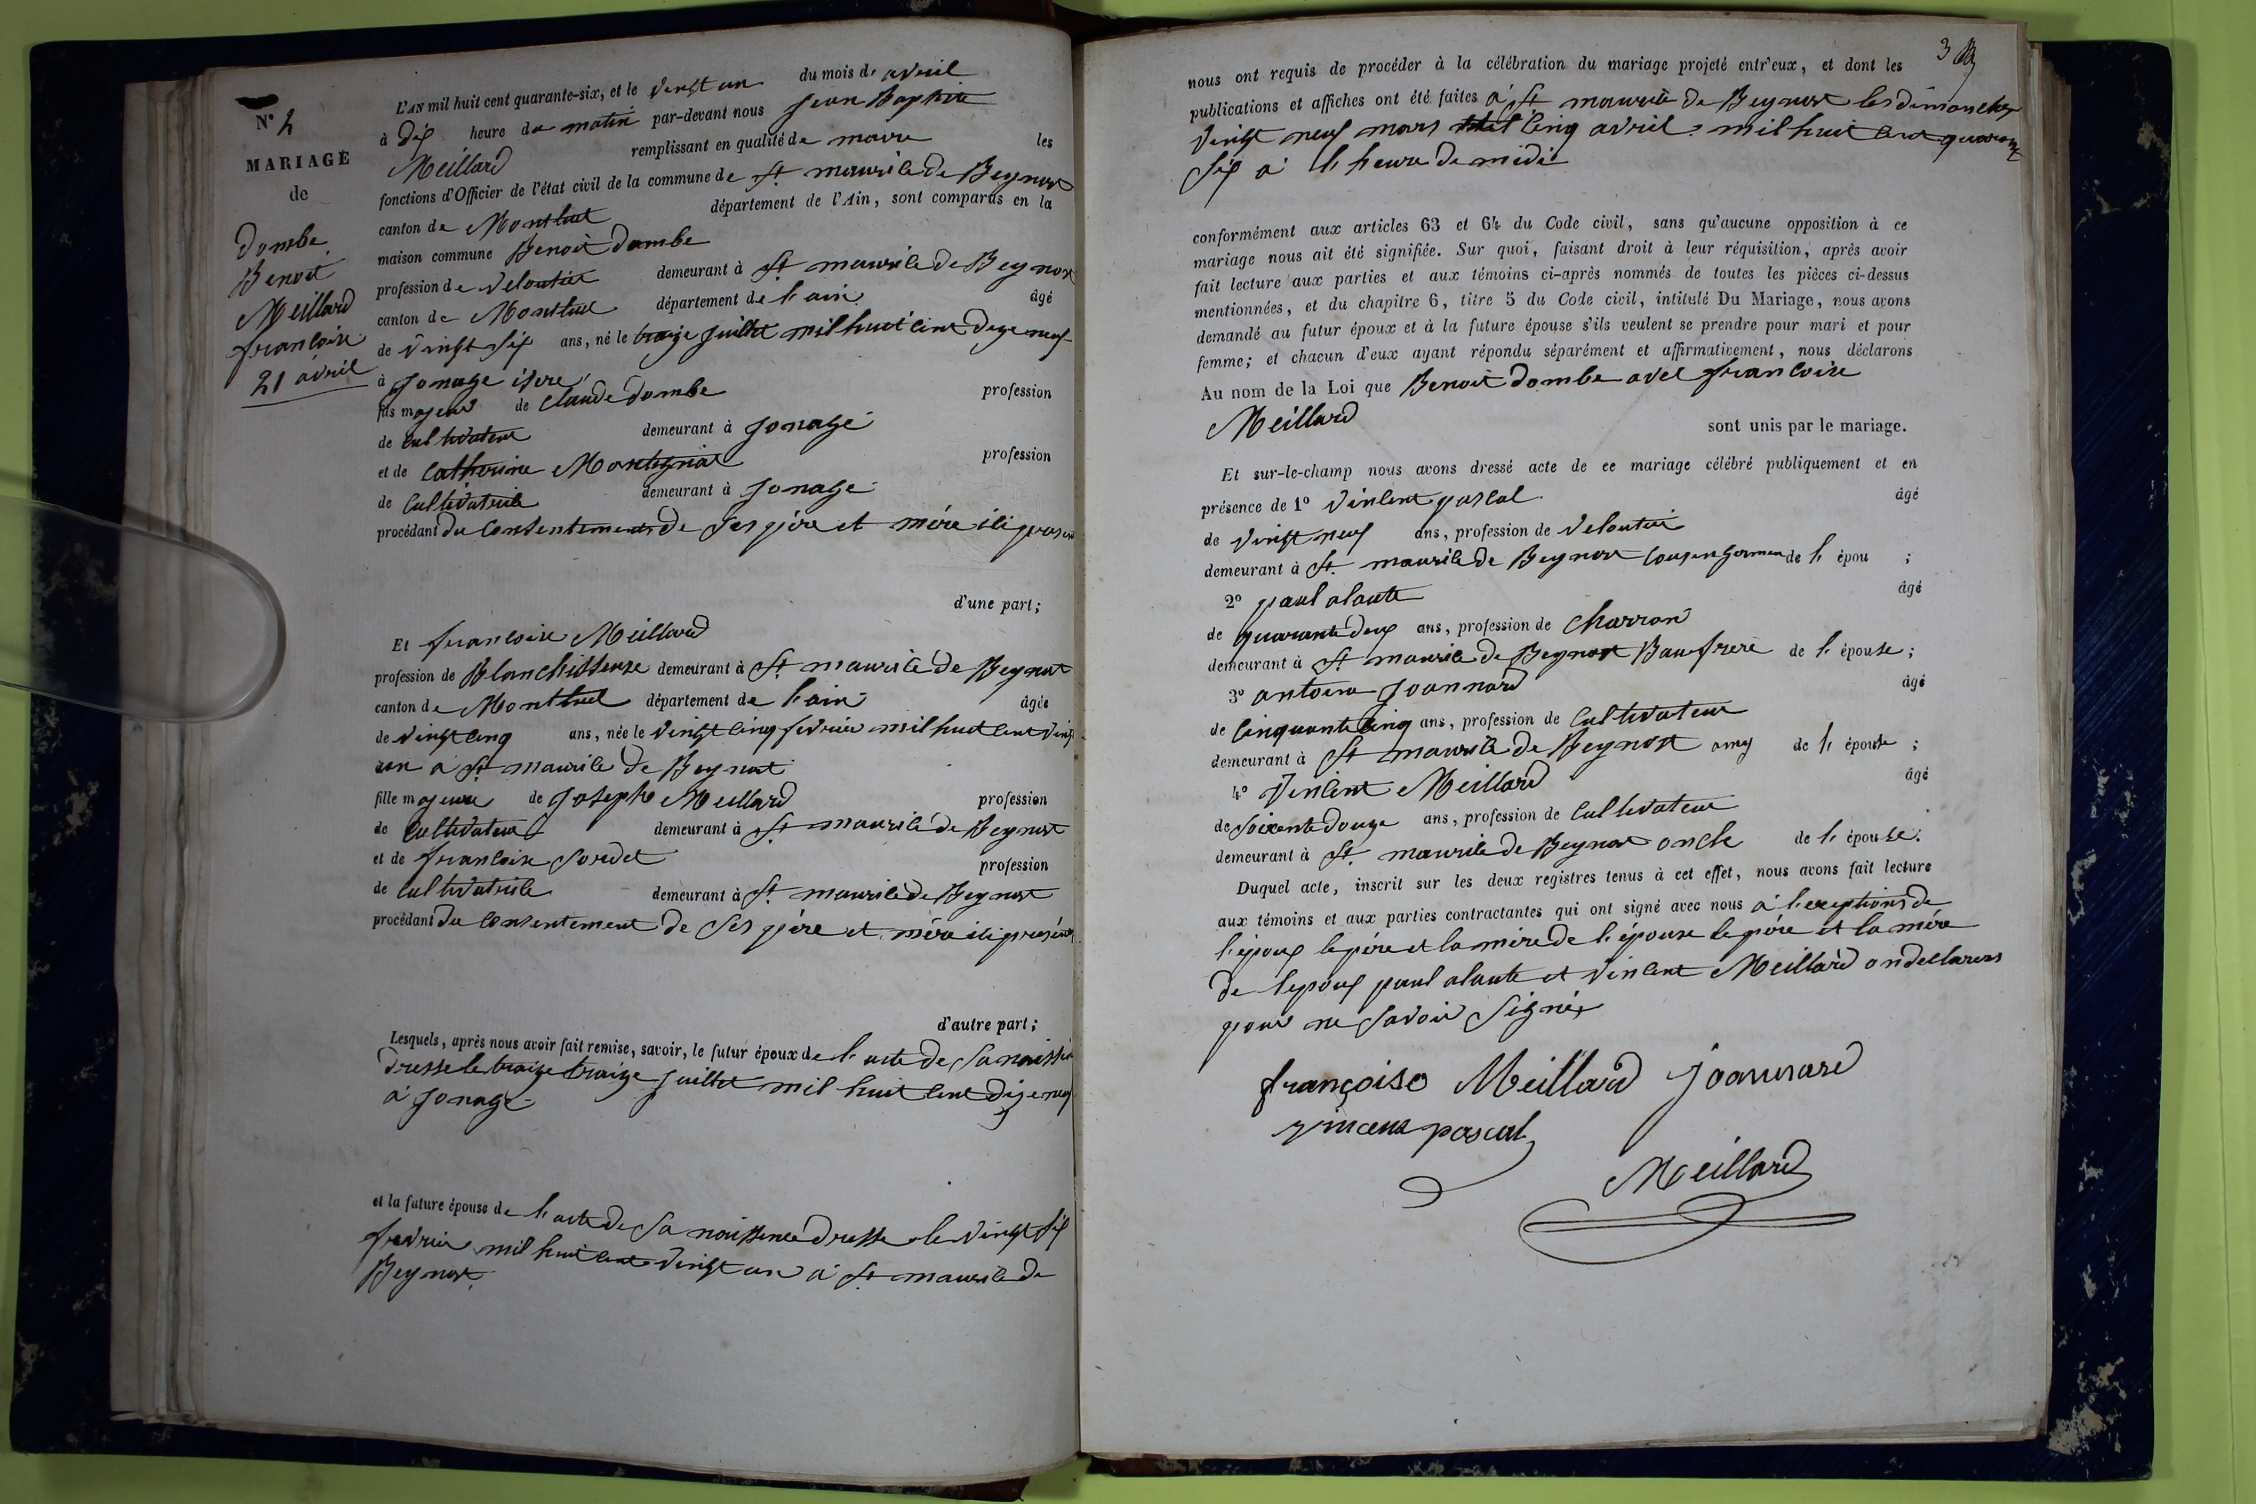 N° 2
MARIAGE
de
Dombe
Benoit
Meillard
francoise
21 avril
L'AN mil huit cent quarante-six, et le vingt un du mois de avril
à dix heure du matin par-devant nous Jean Baptiste
Meillard remplissant en qualité de maire les
fonctions d'Officier de l'état civil de la commune de St maurice De Beynost
canton de Montluel département de l'Ain, sont comparus en la
maison commune Benoit Dombe
profession de veloutier demeurant à St maurice De Beynost
canton de Montluel département de l'ain âgé
de vingt six ans, né le traize juillet mil huit cent dize neuf
à Jonage isère
fils majeur de claude Dombe profession
de cultivateur demeurant à Jonage
et de catherine Montagniat profession
de cultivatrice demeurant à Jonage
procédant du consentement de ses père et mère ici present
d'une part;
Et francoise Meillard
profession de Blanchisseuze demeurant à St maurice de Beynost
canton de Montluel département de l'ain âgée
de vingt cinq ans, née le vingt cinq fevrier mil huit cent vingt
un a St maurice de Beynost
fille majeure de Joseph Meillard profession
de cultivateur demeurant à St maurice de Beynost
et de francoise sordet profession
de cultivatrice demeurant à St maurice de Beynost
procédant du consentement de ses père et mère ici présent
d'autre part;
Lesquels, après nous avoir fait remise, savoir, le futur époux de l'acte de sa naissce
dresse le traize traize juillet mil huit cent dize neuf
à Jonage
et la future épouse de l'acte de sa naissence dresse le vingt six
fevrier mil huit cent vingt un a St maurice de
Beynost
3
nous ont requis de procéder à la célébration du mariage projeté entr'eux, et dont les
publications et affiches ont été faites à St maurice De Beynost les dimanches
vingt neuf mars cinq avril mil huit cent quarante
six a l'heure de midi
conformément aux articles 63 et 64 du Code civil, sans qu'aucune opposition à ce
mariage nous ait été signifiée. Sur quoi, faisant droit à leur réquisition, après avoir
fait lecture aux parties et aux témoins ci-après nommés de toutes les pièces ci-dessus
mentionnées, et du chapitre 6, titre 5 du Code civil, intitulé Du Mariage, nous avons
demandé au futur époux et à la future épouse s'ils veulent se prendre pour mari et pour
femme; et chacun d'eux ayant répondu séparément et affirmativement, nous déclarons
Au nom de la Loi que Benoit Dombe avec francoise
Meillard sont unis par le mariage.
Et sur-le-champ nous avons dressé acte de ce mariage célébré publiquement et en
présence de 1° vincent pascal âgé
de vingt neuf ans, profession de veloutier
demeurant à St. maurice De Beynost cousin germen de l'épou ;
2° paul alante âgé
de quarante deux ans, profession de charron
demeurant à St maurice De Beynost Baufrere de l'épouse;
3° antoine Joannard âgé
de cinquante cinq ans, profession de cultivateur
demeurant à St maurice De Beynost amy de l'épouse ;
4° Vincent Meillard âgé
de soixente douze ans, profession de cultivateur
demeurant à St. maurice de Beynost oncle de l'épouse.
Duquel acte, inscrit sur les deux registres tenus à cet effet, nous avons fait lecture
aux témoins et aux parties contractantes qui ont signé avec nous à l'exeptions de
l'époux le père et la mère de l'épouse le père et la mére
de l'epoux paul alante et vincent Meillard on declarers
pour ne savoir signér
françoise Meillard Joannard
vincent pascal
Meillard